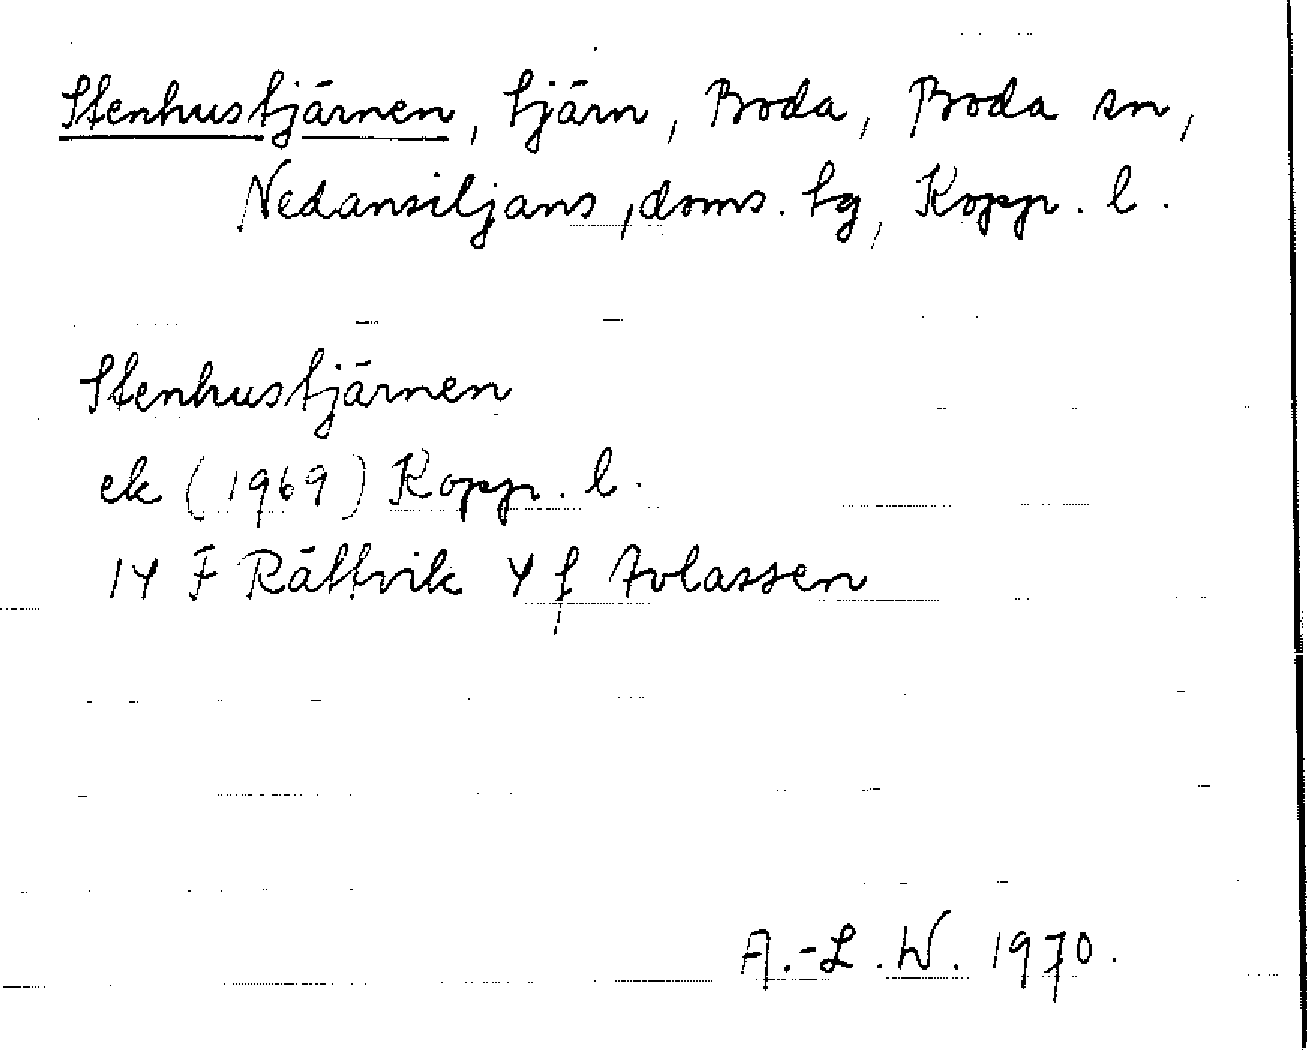 Stenhustjärnen, tjärn, Boda, Boda sn,
Nedansiljans, doms. tg, Kopp. l.
Stenhustjärnen
ek (1969) Kopp. l.
14 F Rättvik 4 f Avlassen
A.-L. W. 1970.